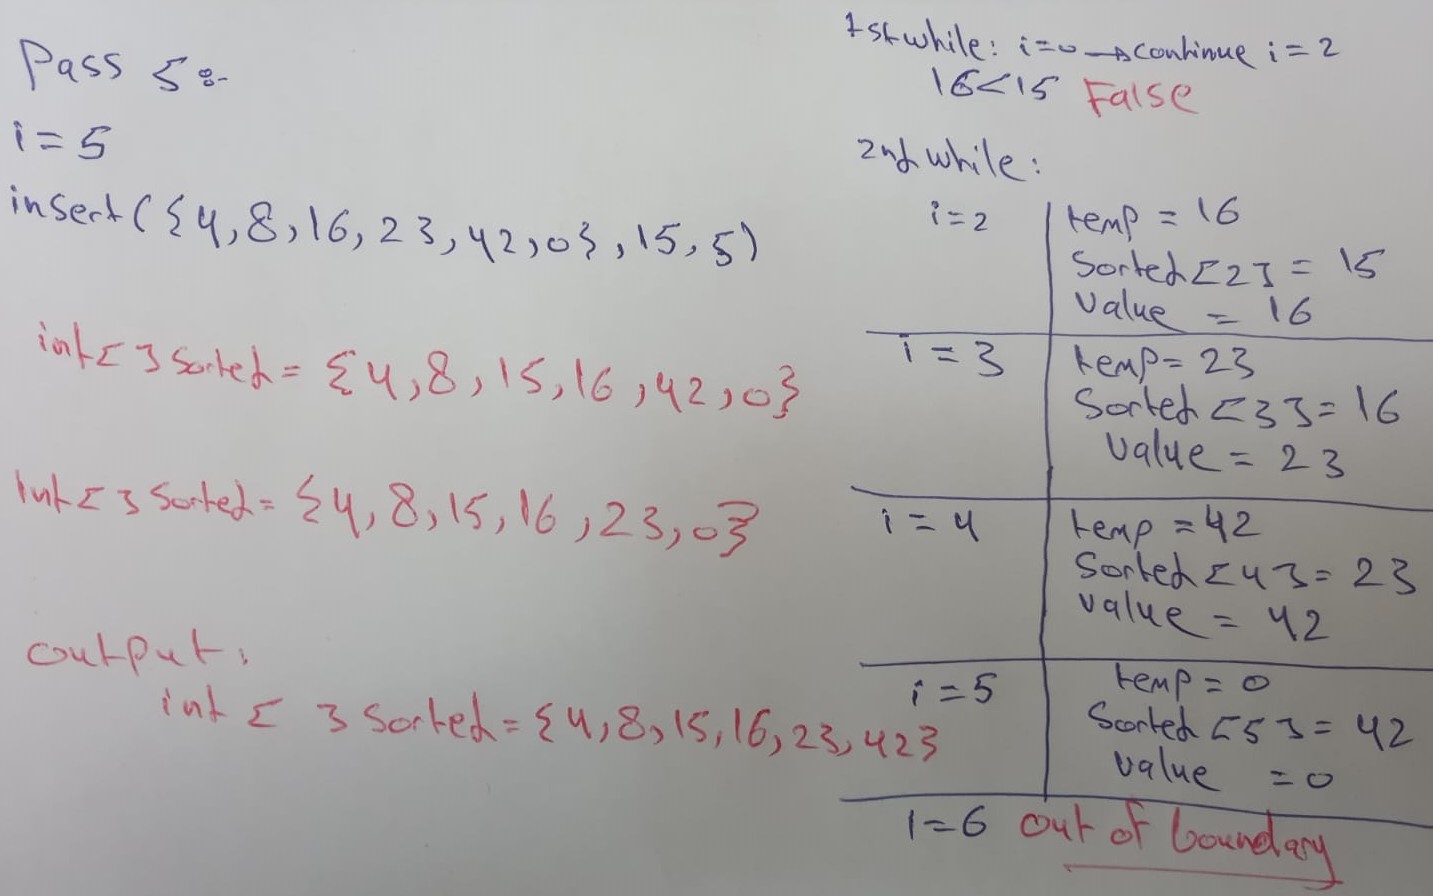 Pass 5:-
i = 5
insert({4,8,16,23,42,0},15,5)
int[] Sorted = {4,8,15,16,42,0}
int[] Sorted = {4,8,15,16,23,0}
output:
int [ ] Sorted = {4,8,15,16,23,42}
1st while: i=0 → continue i = 2
16<15 False
2nd while:
i=2
temp = 16
Sorted[2] = 15
Value = 16
i = 3
temp = 23
Sorted [3] = 16
Value = 23
i = 4
temp = 42
Sorted [4] = 23
value = 42
i = 5
temp = 0
Sorted [5] = 42
value = 0
i=6 out of boundary